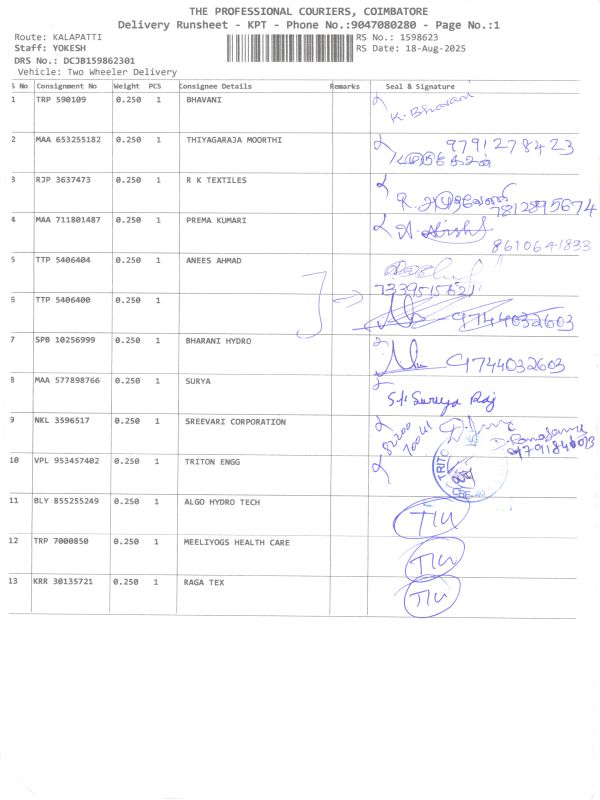 THE PROFESSIONAL COURIERS, COIMBATORE
Delivery Runsheet - KPT - Phone No.:9047080280 - Page No.:1
Route: KALAPATTI
RS No.: 1598623
Staff: YOKESH
RS Date: 18-Aug-2025
DRS No.: DCJB159862301
Vehicle: Two Wheeler Delivery
S No Consignment No Weight PCS Consignee Details Remarks Seal & Signature
1 TRP 590109 0.250 1 BHAVANI K. Bhavani
2 MAA 653255182 0.250 1 THIYAGARAJA MOORTHI 9791278423
3 RJP 3637473 0.250 1 R K TEXTILES 7812895674
4 MAA 711801487 0.250 1 PREMA KUMARI
8610641833
5 TTP 5406404 0.250 1 ANEES AHMAD
6 TTP 5406400 0.250 1 9744032603
7 SPB 10256999 0.250 1 BHARANI HYDRO 9744032603
8 MAA 577898766 0.250 1 SURYA Surya Raj
9 NKL 3596517 0.250 1 SREEVARI CORPORATION
10 VPL 953457402 0.250 1 TRITON ENGG
11 BLY 855255249 0.250 1 ALGO HYDRO TECH
12 TRP 7000850 0.250 1 MEELIYOGS HEALTH CARE
13 KRR 30135721 0.250 1 RAGA TEX